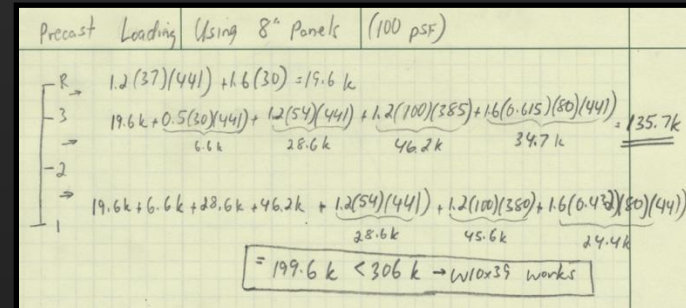 Precast Loading Using 8" Panels (100 psf)
R 1.2(37)(441) +1.6(30) = 19.6 k
3 19.6k + 0.5(30)(441) + 1.2(54)(441) + 1.2(100)(385) + 1.6(0.615)(80)(441) = 135.7k
6.6k 28.6k 46.2k 34.7k
2
19.6k + 6.6k + 28.6k + 46.2k + 1.2(54)(441) + 1.2(100)(380) + 1.6(0.432)(80)(441)
1
28.6k 45.6k 24.4k
= 199.6 k < 306 k → W10x39 works